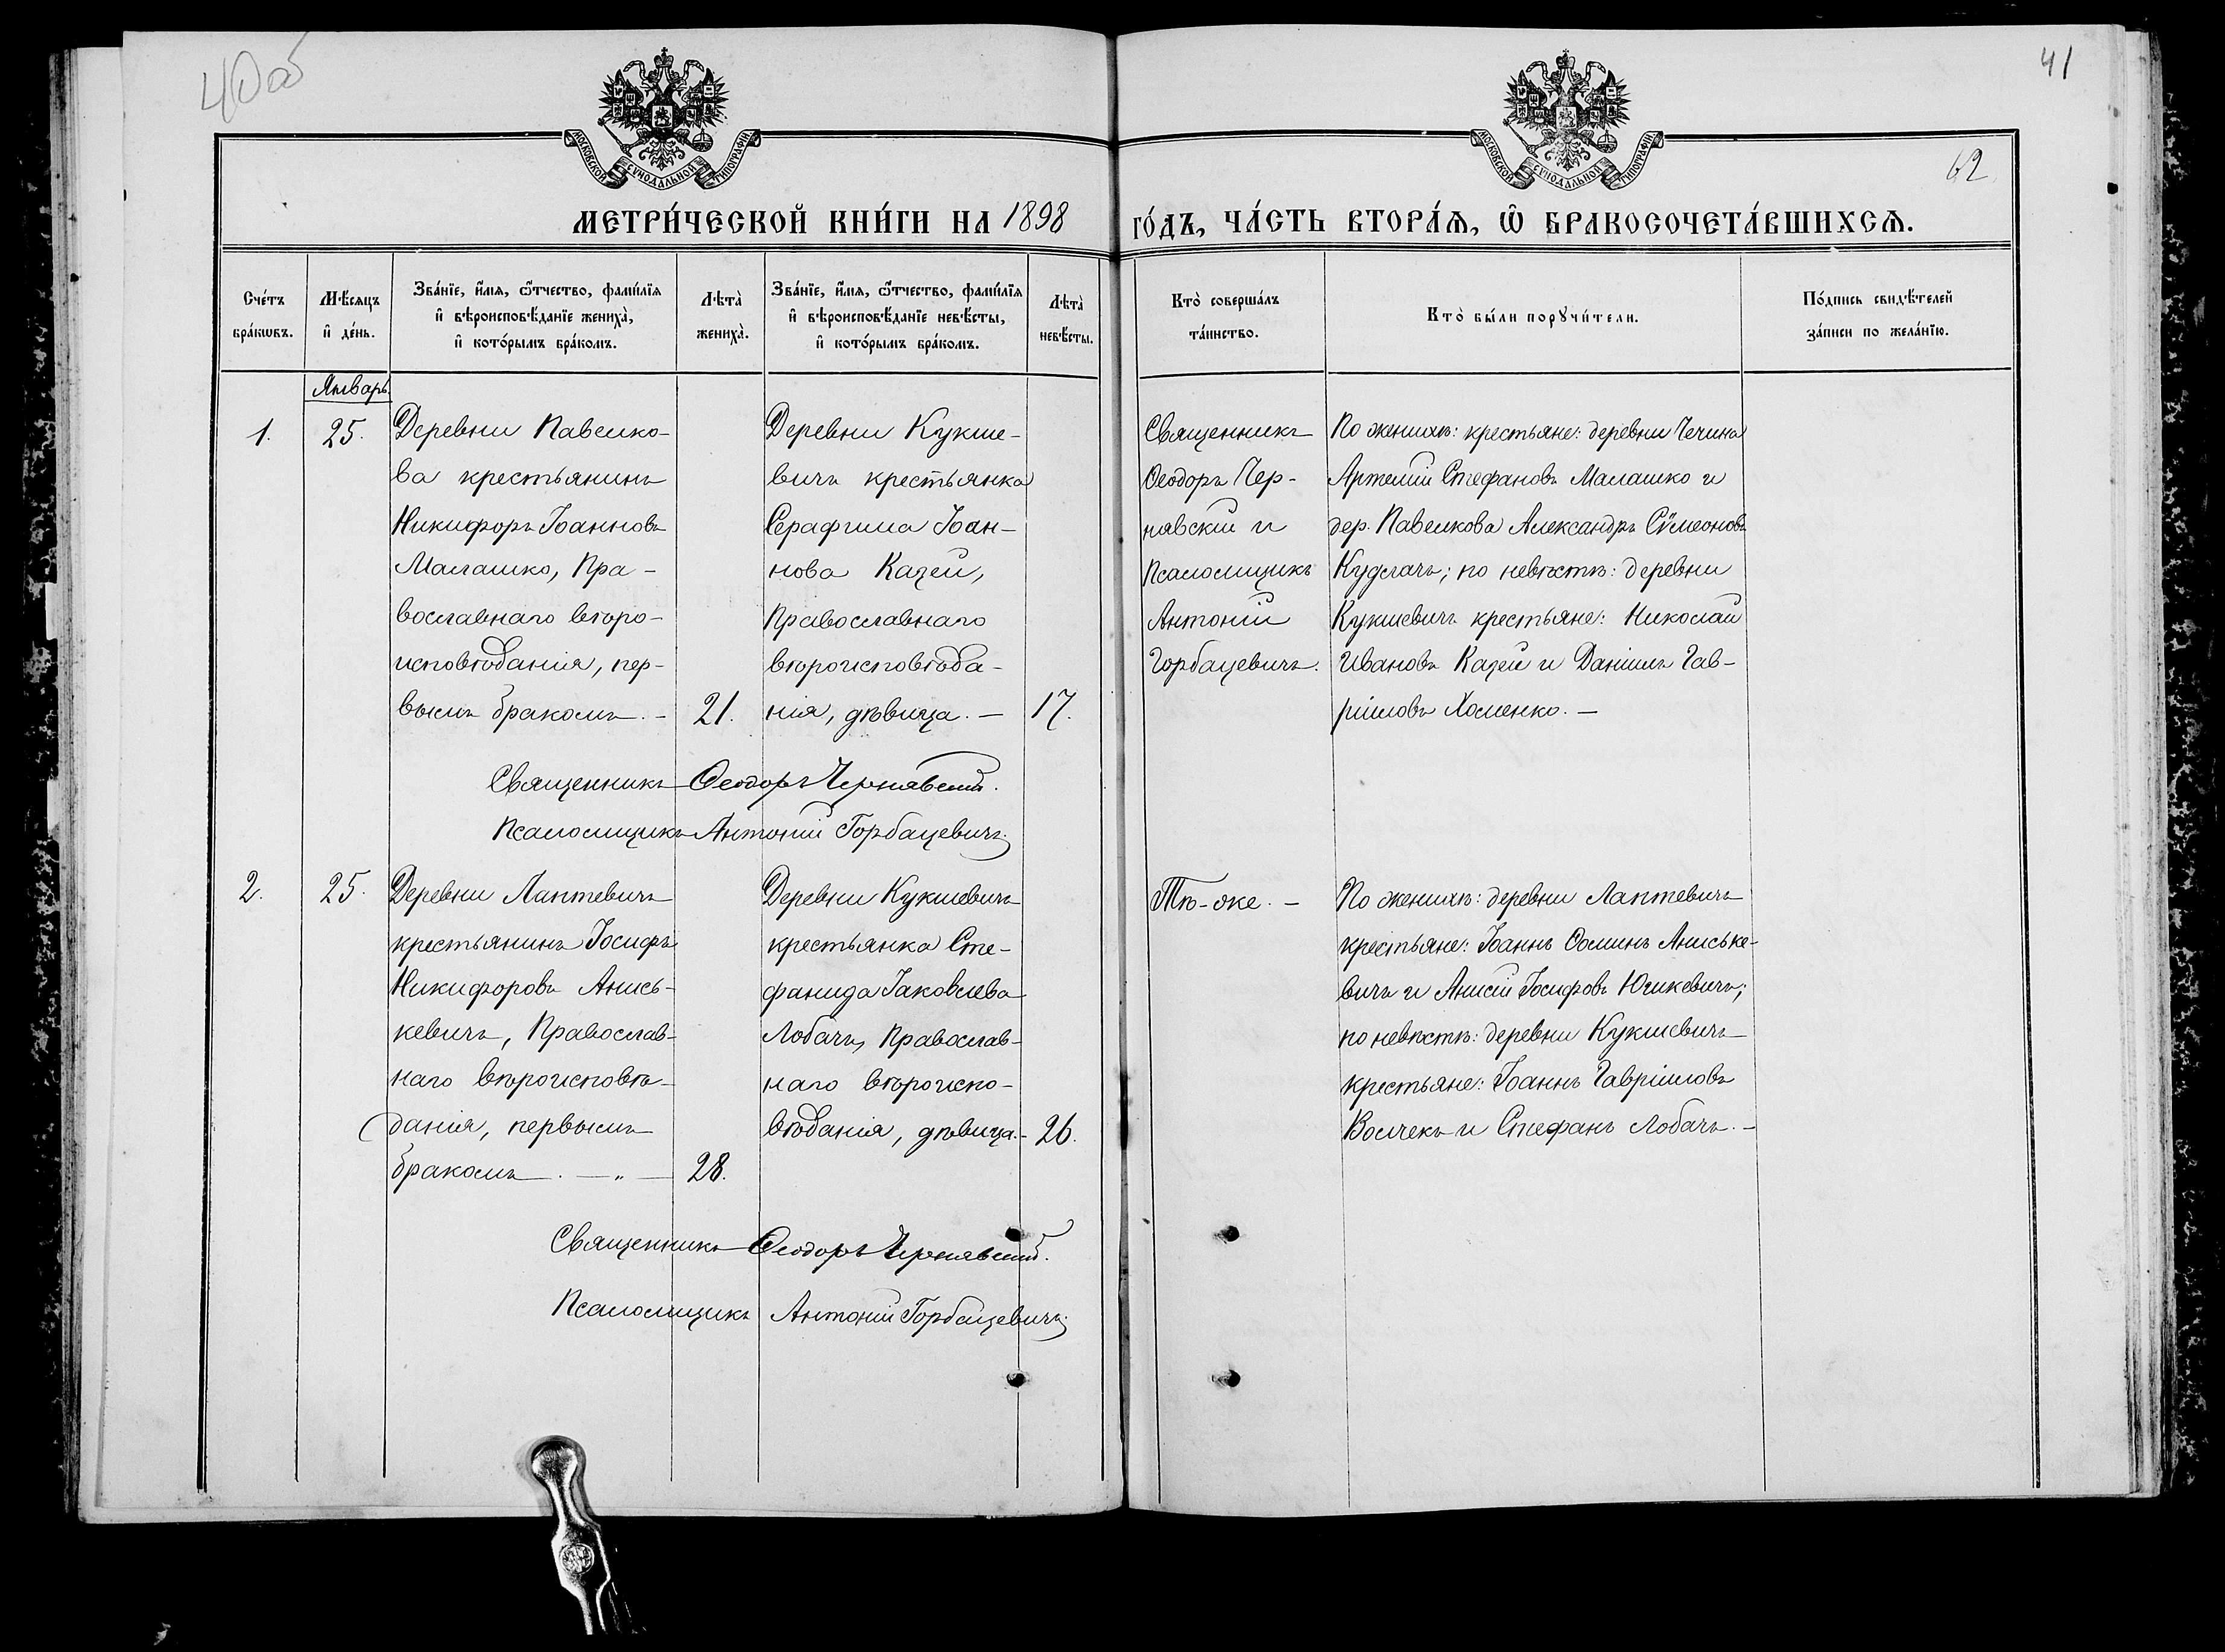 40об
41
62
МОСКОВСКОЙ СѴНОДАЛЬНОЙ ТИПОГРАФІИ
МОСКОВСКОЙ СѴНОДАЛЬНОЙ ТИПОГРАФІИ
МЕТРИ́ЧЕСКОЙ КНИ́ГИ НА 1898 ГО́ДЪ, ЧА́СТЬ ВТОРА́Я, Ѡ БРАКОСОЧЕТА́ВШИХСЯ.
Сче́тъ
бра́кѡвъ.
Мѣ́сяцъ
и҆ де́нь.
Зва́нїе, и҆́мя, ѻ҆́тчество, фами́лїя
и҆ вѣроисповѣ́данїе жениха̀,
и҆ кото́рымъ бра́комъ.
Лѣта̀
жениха̀.
Зва́нїе, и҆́мя, ѻ҆́тчество, фами́лїя
и҆ вѣроисповѣ́данїе невѣ́сты,
и҆ кото́рымъ бра́комъ.
Лѣта̀
невѣ́сты.
Кто̀ соверша́лъ
та́инство.
Кто̀ бы́ли порꙋчи́тели.
По́дпись свидѣ́телей
за́писи по жела́нїю.
Январь.
1.
25.
Деревни Павелко-
ва крестьянинъ
Никифоръ Іоанновъ
Малашко, Пра-
вославнаго вѣро-
исповѣданія, пер-
вымъ бракомъ. -
21.
Деревни Кукше-
вичъ крестьянка
Серафима Іоан-
нова Казей,
Православнаго
вѣроисповѣда-
нія, дѣвица. -
17.
Священникъ
Ѳеодоръ Чер-
нявскій и
Псаломщикъ
Антоній
Горбацевичъ.
По женихѣ: крестьяне: деревни Чечина
Артемій Стефановъ Малашко и
дер. Павелкова Александръ Сѵмеоновъ
Кудлачъ; по невѣстѣ: деревни
Кукшевичъ крестьяне: Николай
Ивановъ Казей и Даніилъ Гав-
ріиловъ Хоменко. -
Священникъ Ѳеодоръ Чернявскій.
Псаломщикъ Антоній Горбацевичъ.
2.
25.
Деревни Лаптевичъ
крестьянинъ Іосифъ
Никифоровъ Анись-
кевичъ, Православ-
наго вѣроисповѣ-
данія, первымъ
бракомъ. — „ —
28.
Деревни Кукшевичъ
крестьянка Сте-
фанида Іаковлева
Лобачъ, Православ-
наго вѣроиспо-
вѣданія, дѣвица. -
26.
Тѣ-же. -
По женихѣ: деревни Лаптевичъ
крестьяне: Іоаннъ Ѳоминъ Аниське-
вичъ и Анисій Іосифовъ Юшкевичъ;
по невѣстѣ: деревни Кукшевичъ
крестьяне: Іоаннъ Гавріиловъ
Волчекъ и Стефанъ Лобачъ. -
Священникъ Ѳеодоръ Чернявскій.
Псаломщикъ Антоній Горбацевичъ.